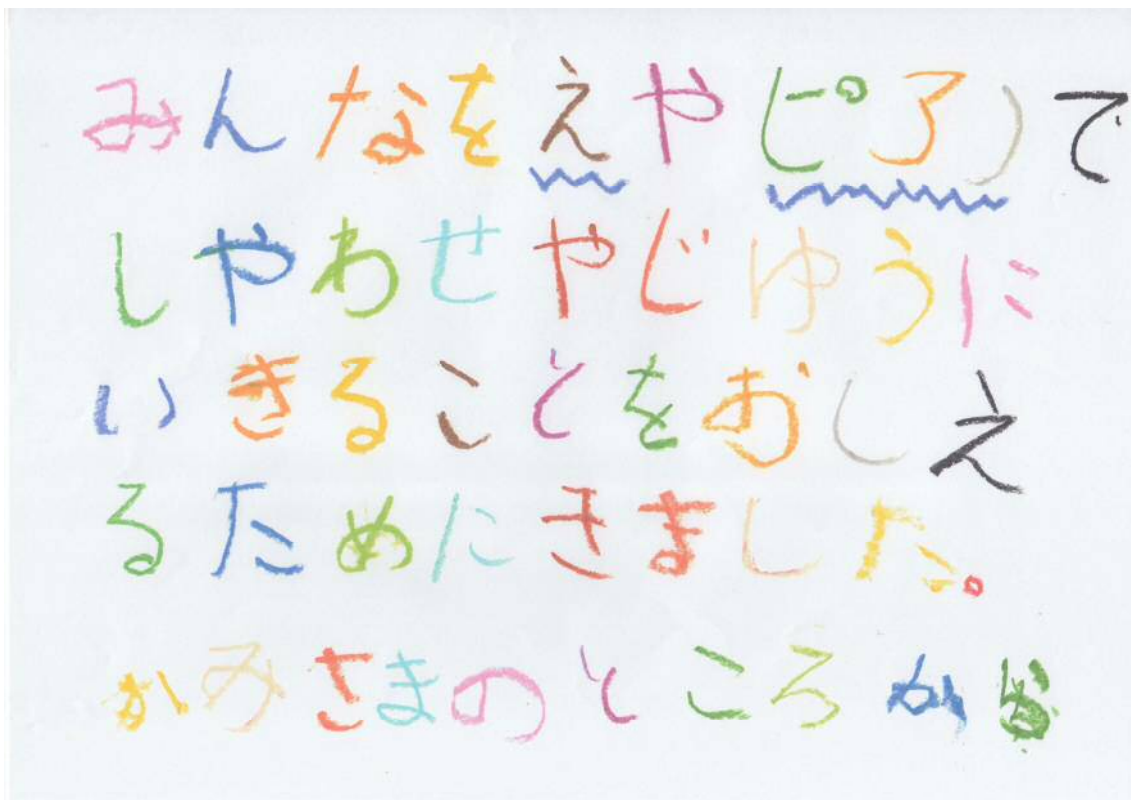 みんなをえやピアノで
しやわせやじゆうに
いきることをおしえ
るためにきました。
かみさまのところから